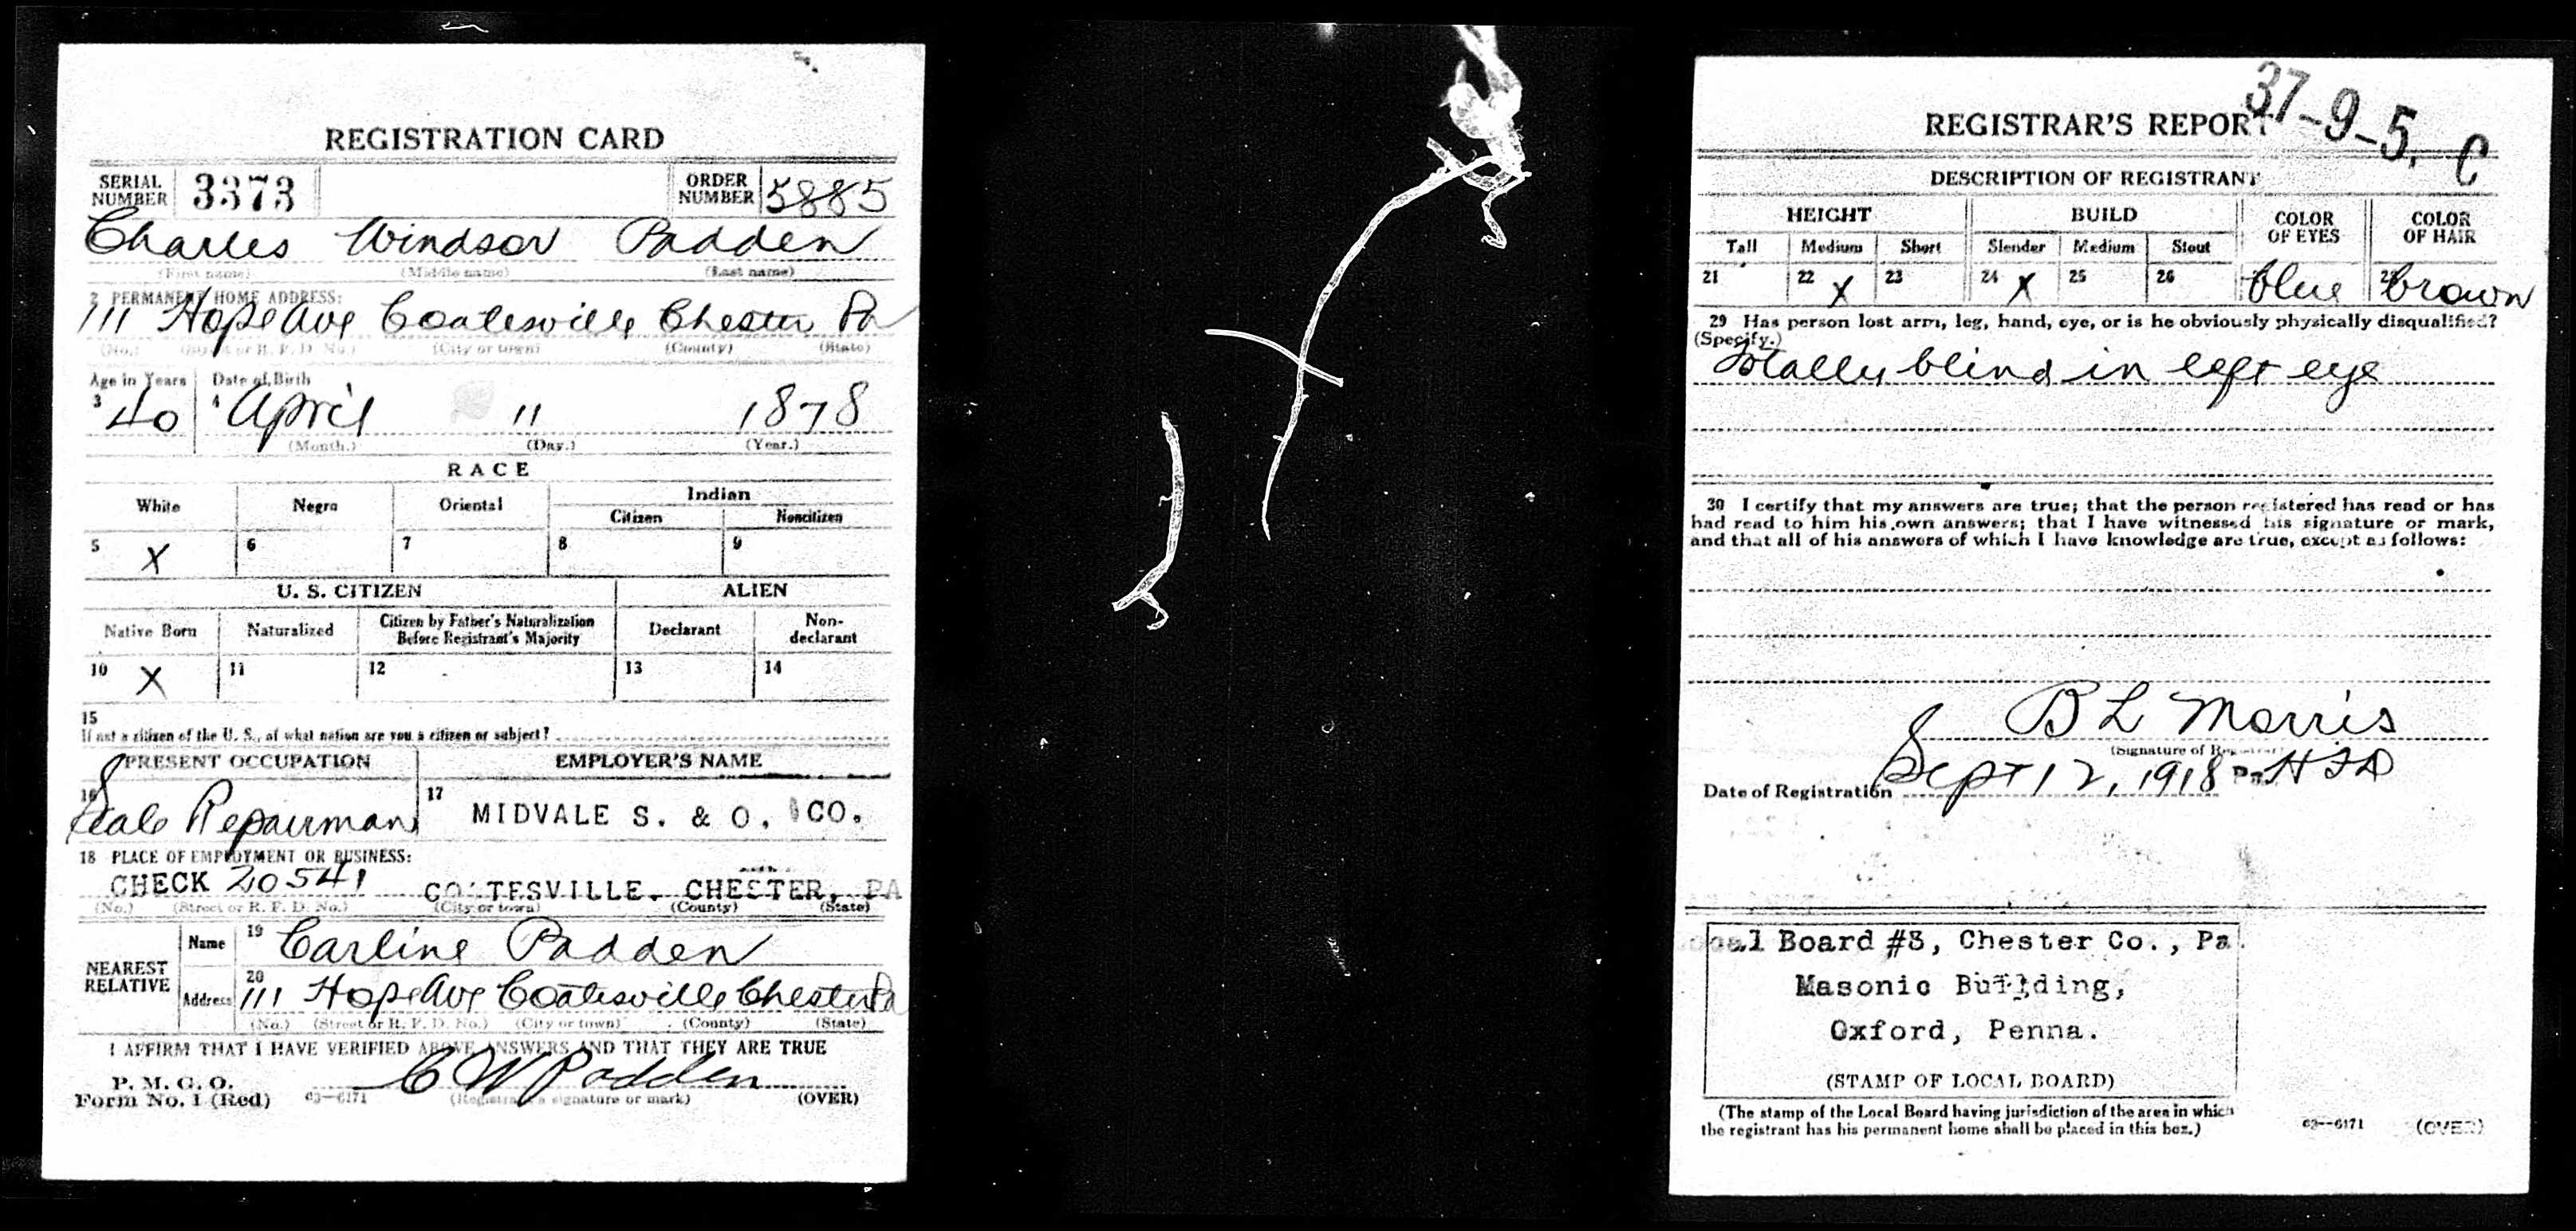 REGISTRATION CARD
SERIAL NUMBER 3373 ORDER NUMBER 5885
Charles Windsor Padden
(First name) (Middle name) (Last name)
2 PERMANENT HOME ADDRESS:
111 Hope Ave Coatesville Chester Pa
(No.) (Street or R. F. D. No.) (City or town) (County) (State)
Age in Years Date of Birth
3 40 4 April 11 1878
(Month.) (Day.) (Year.)
RACE
White Negro Oriental Indian
Citizen Noncitizen
5 X 6 7 8 9
U. S. CITIZEN ALIEN
Native Born Naturalized Citizen by Father's Naturalization Before Registrant's Majority Declarant Non-declarant
10 X 11 12 13 14
15
If not a citizen of the U. S., of what nation are you a citizen or subject?
PRESENT OCCUPATION EMPLOYER'S NAME
16 Scale Repairman 17 MIDVALE S. & O. CO.
18 PLACE OF EMPLOYMENT OR BUSINESS:
CHECK 20541 COATESVILLE. CHESTER, PA
(No.) (Street or R. F. D. No.) (City or town) (County) (State)
NEAREST RELATIVE
Name 19 Carline Padden
Address 20 111 Hope Ave Coatesville Chester Pa
(No.) (Street or R. F. D. No.) (City or town) (County) (State)
I AFFIRM THAT I HAVE VERIFIED ABOVE ANSWERS AND THAT THEY ARE TRUE
P. M. G. O.
Form No. 1 (Red) 03—6171 C W Padden (OVER)
(Registrant's signature or mark)
37-9-5. C
REGISTRAR'S REPORT
DESCRIPTION OF REGISTRANT
HEIGHT BUILD COLOR OF EYES COLOR OF HAIR
Tall Medium Short Slender Medium Stout
21 22 X 23 24 X 25 26 blue brown
29 Has person lost arm, leg, hand, eye, or is he obviously physically disqualified?
(Specify.)
Totally blind in left eye
30 I certify that my answers are true; that the person registered has read or has
had read to him his own answers; that I have witnessed his signature or mark,
and that all of his answers of which I have knowledge are true, except as follows:
B L Morris
(Signature of Registrar)
Date of Registration Sept 12, 1918
Local Board #3, Chester Co., Pa.
Masonic Building,
Oxford, Penna.
(STAMP OF LOCAL BOARD)
(The stamp of the Local Board having jurisdiction of the area in which
the registrant has his permanent home shall be placed in this box.)
03—6171 (OVER)